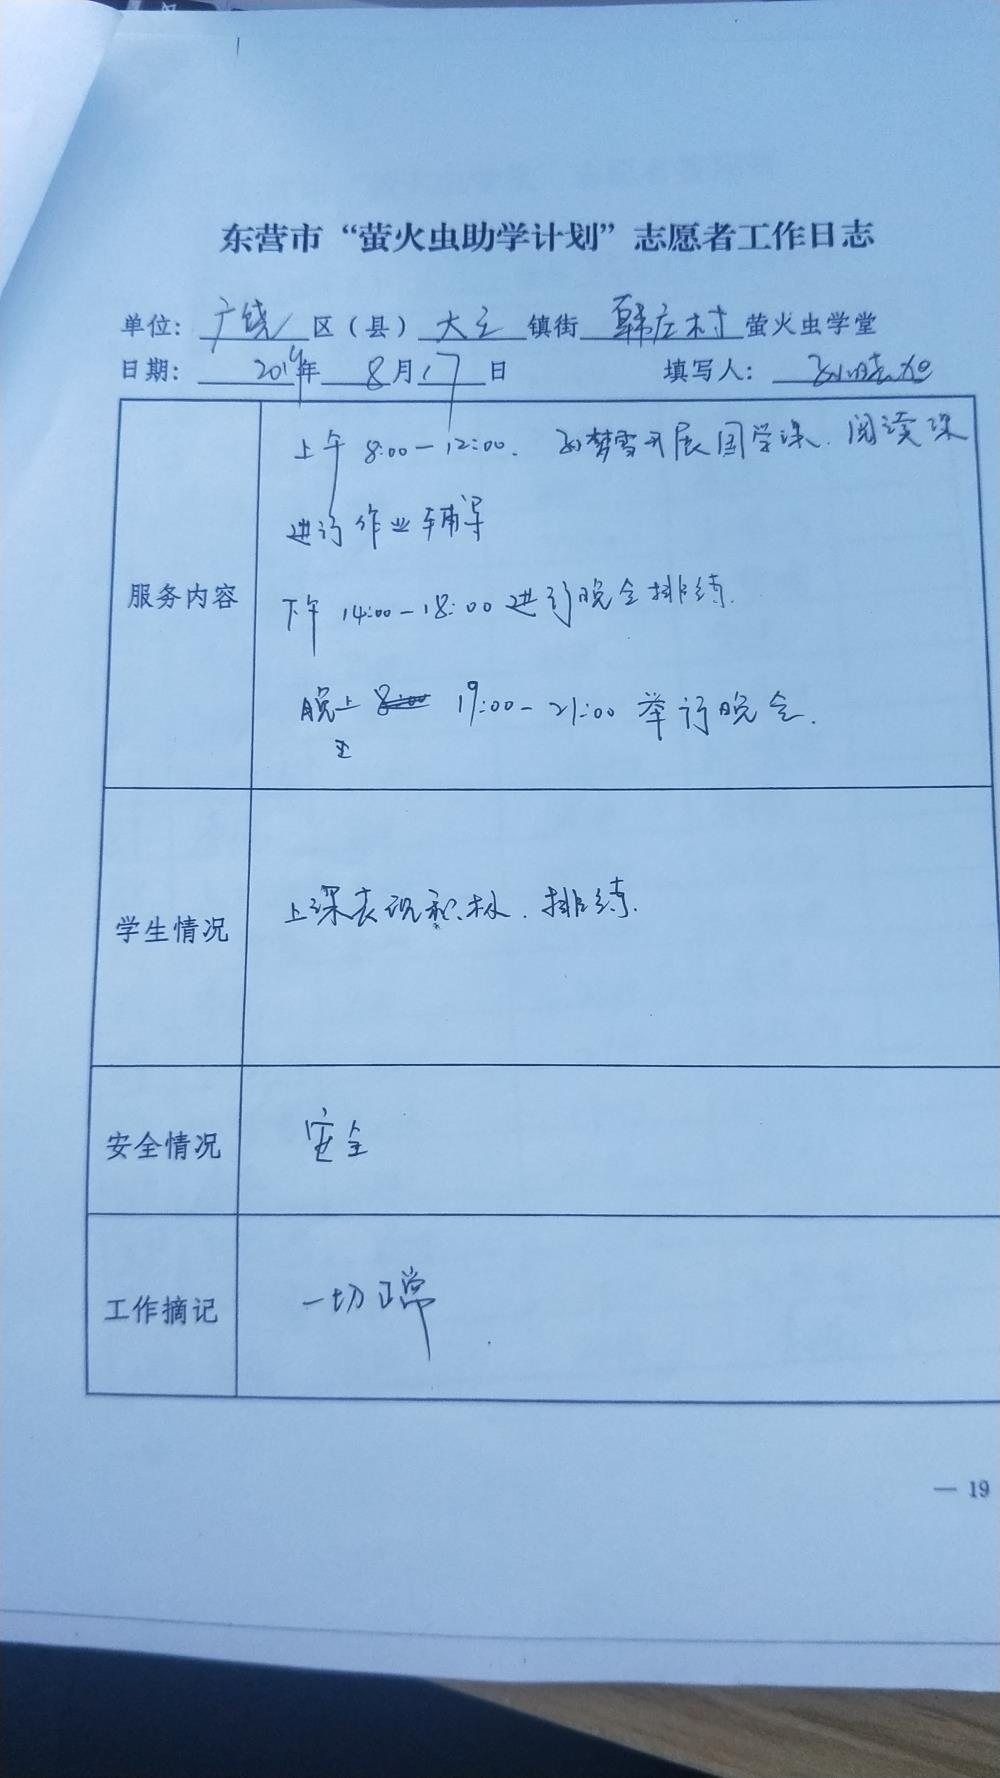 东营市“萤火虫助学计划”志愿者工作日志
单位：广饶区（县）大王镇街韩庄村萤火虫学堂
日期：2019年8月17日 填写人：孙晓旭
上午 8:00－12:00. 孙梦雪开展国学课、阅读课
进行作业辅导
服务内容
下午 14:00－18:00 进行晚会排练.
晚上 19:00－21:00 举行晚会.
学生情况 上课表现积极、排练.
安全情况 安全
工作摘记 一切正常
— 19